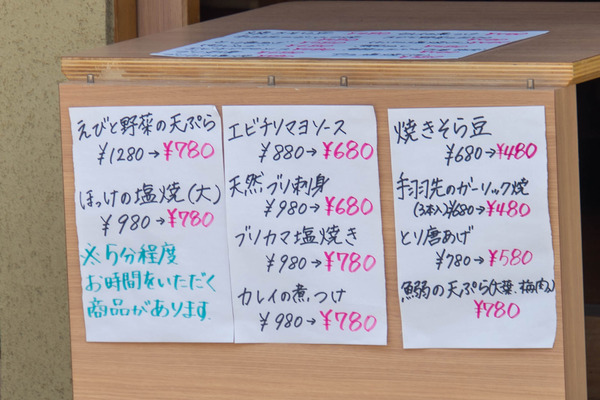 えびと野菜の天ぷら
¥1280→¥780
ほっけの塩焼(大)
¥980→¥780
※5分程度
お時間をいただく
商品があります
エビチリマヨソース
¥880→¥680
天然ブリ刺身
¥980→¥680
ブリカマ塩焼き
¥980→¥780
カレイの煮つけ
¥980→¥780
焼きそら豆
¥680→¥480
手羽先のガーリック焼
(3本入)¥680→¥480
とり唐あげ
¥780→¥580
の天ぷら(大葉、梅肉入)
¥780